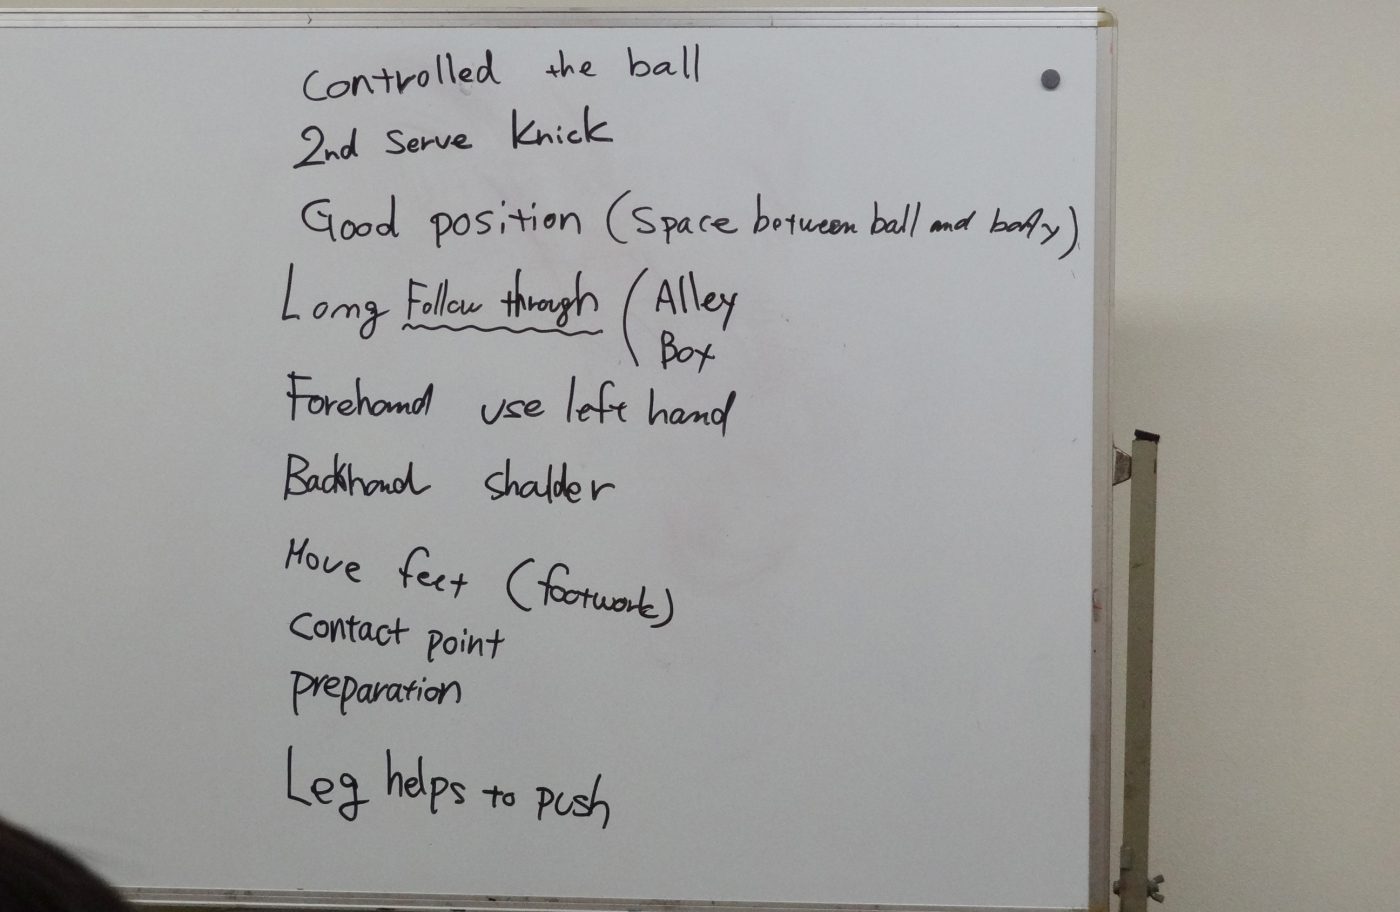 Controlled the ball
2nd Serve Knick
Good position (Space between ball and body)
Long Follow through ( Alley
Box
Forehand use left hand
Backhand shalder
Move feet (footwork)
Contact point
preparation
Leg helps to push